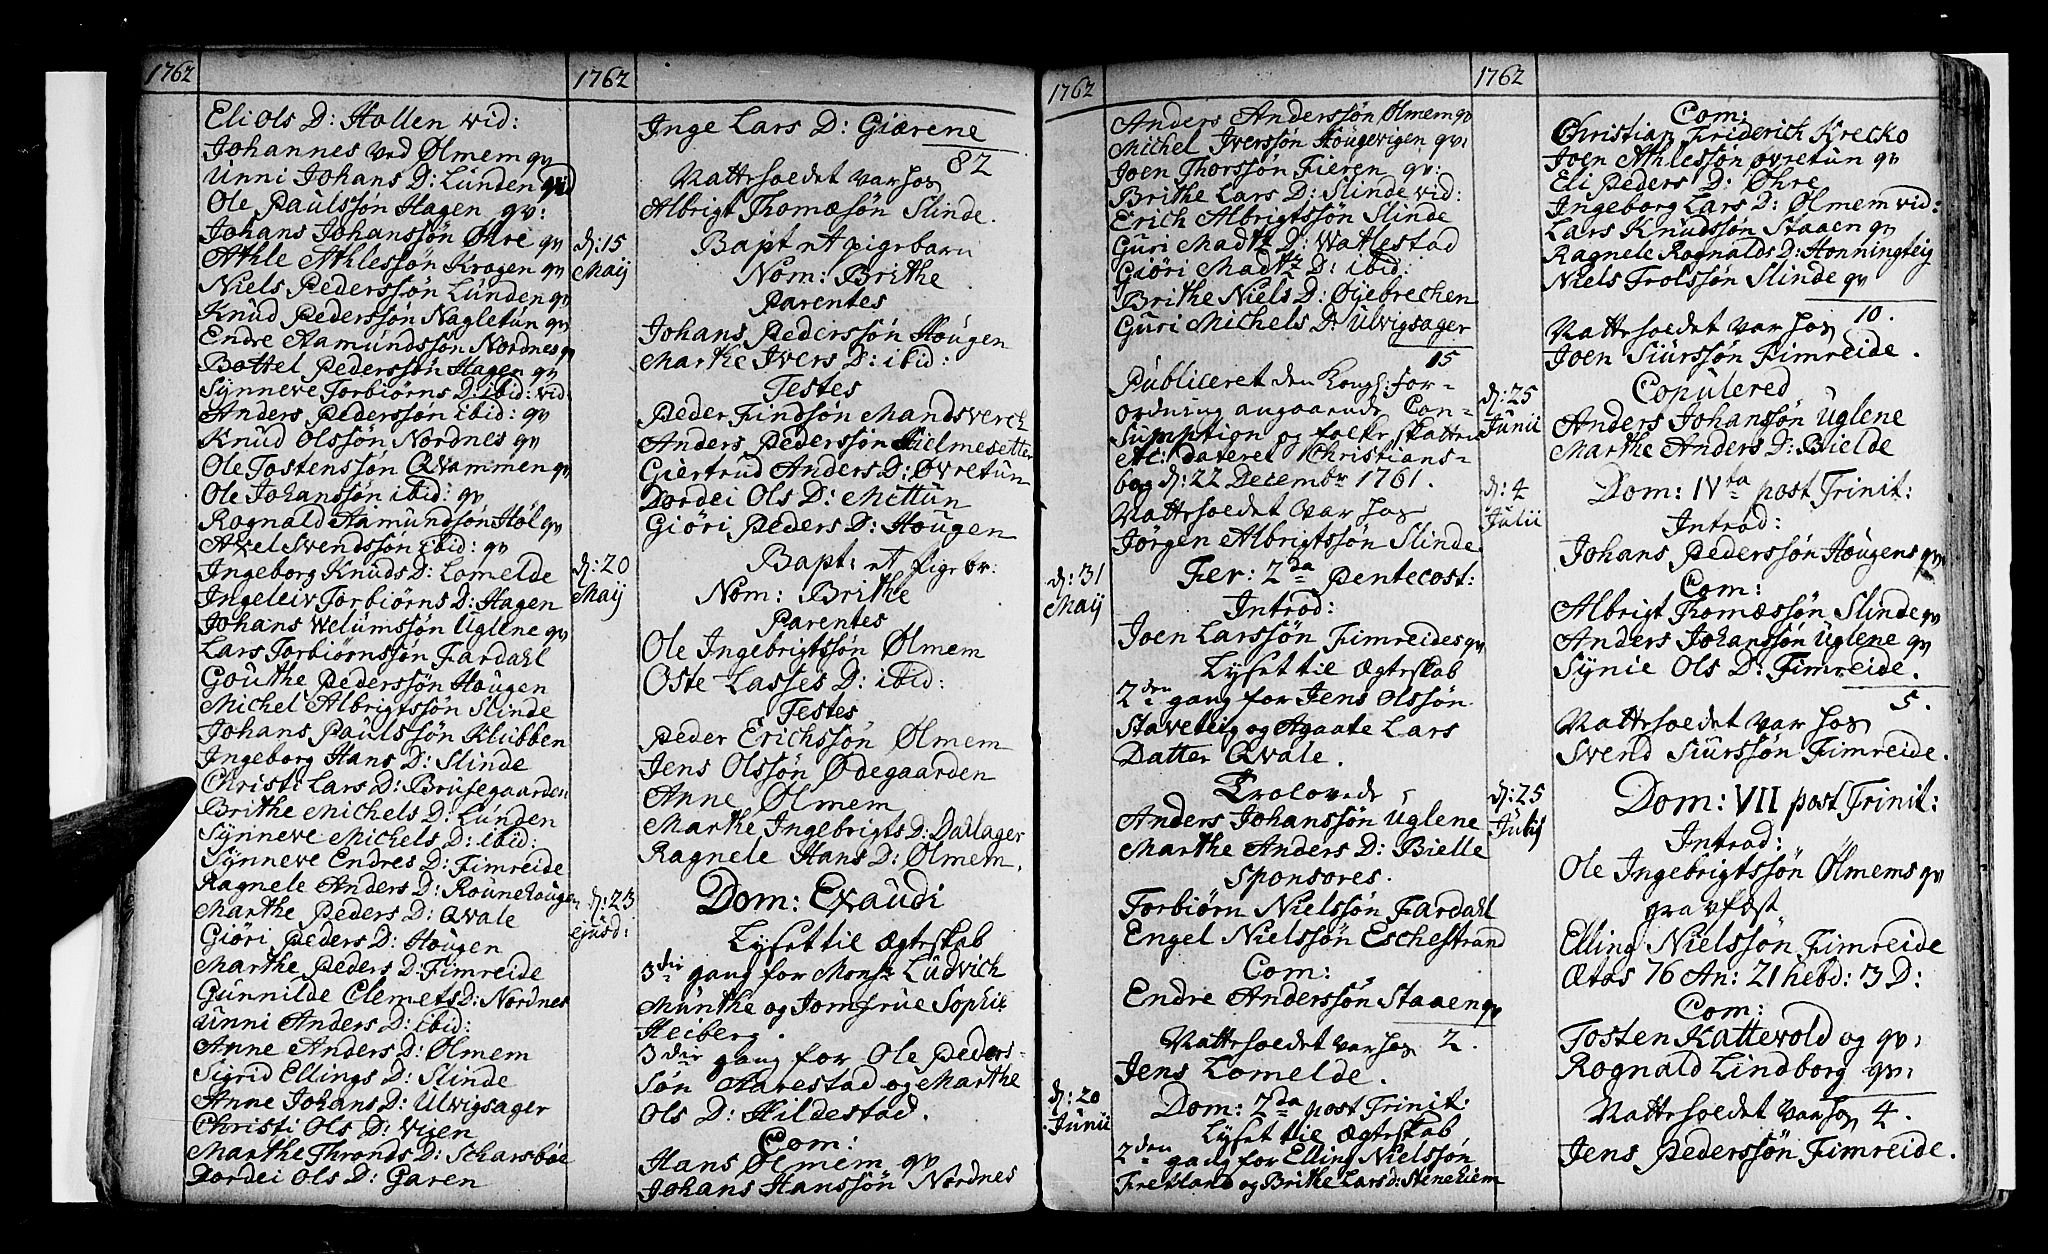 1762
Eli Ols D: Hollen wid:
Johannes ved Ølmem qv
Unni Johans D: Lunden qvid
Ole Paulssøn Hagen qv:
Johans Johanssøn Øhre qv
Athle Athlessøn Kragen qv
Niels Pederssøn Lunden qv
Knud Pederssøn Nagletun qv
Endre Aamundssøn Nordnes qv
Bottel Pederssøn Hagen qv
Synneve Torbiørns D: ibid: vid:
Anders Pederssøn ibid: qv
Knud Olssøn Nordnes qv
Ole Tostenssøn Qvammen qv
Ole Johanssøn ibid: qv
Rognald Aamundsøn Høl qv
Axel Svendssøn ibid: qv
Ingeborg Knuds D: Lomelde
Ingeleiv Torbiørns D: Hagen
Johans Welumssøn Uglene qv
Lars Torbiørnssøn Fardahl
Gouthe Pederssøn Hougen
Michel Albrigtssøn Slinde
Johans Paulssøn Klubben
Ingeborg Hans D: Slinde
Christi Lars D: Brusegaarden
Brithe Michels D: Lunden
Synneve Michels D: ibid:
Synneve Endres D: Fimreide
Ragnele Anders D: Rounehougen
Marthe Peders D: Qvale
Giøri Peders D: Hougen
Marthe Peders D: Fimreide
Gunnilde Clemets D: Nordnes
Unni Anders D: ibid:
Anne Anders D: Ølmem
Sigrid Ellings D: Slinde
Anne Johans D: Ulvigsager
Christi Ols D: Vuen
Marthe Thronds D: Scharsbøe
Dordei Ols D: Garen
1762
Inge Lars D: Giærene
82
Nattesædet var hos
Albrigt Thomæsøn Slinde.
d: 15 Maij
Bapt: et pigebarn
Nom: Brithe
Parentes
Johans Pederssøn Hougen
Marthe Ivers D: ibid:
Testes
Peder Findsøn Mandsverch
Anders Pederssøn Hielmesetter
Giertrud Anders D: Øvretun
Dordei Ols D: Mittun
Giøri Peders D: Hougen
d: 20 Maij
Bapt: et pige br:
Nom: Brithe
Parentes
Ole Ingebrigtssøn Ølmem
Oste Lasses D: ibid:
Testes
Peder Erichssøn Ølmem
Jens Olssøn Ødegaarden
Anne Ølmem
Marthe Ingebrigts D: Dallager
Ragnele Hans D: Ølmem.
d: 23 ejusd:
Dom: Exaudi
Lyset til Ægteskab
3die gang for Monsr Ludvich
Munthe og Jomfrue Sophie
Heiberg.
3die gang for Ole Peders-
søn Aarestad og Marthe
Ols D: Hildestad.
Com:
Hans Ølmem qv
Johans Hanssøn Nordnes
1762
Anders Anderssøn Ølmem qv
Michel Iverssøn Hougevigen qv:
Joen Thorssøn Fieren qv:
Brithe Lars D: Slinde vid:
Erich Albrigtssøn Slinde
Guri Madtz D: Watlestad
Giøri Madtz D: ibid:
Brithe Niels D: Øyebrechen
Guri Michels D: Ulvigsager
15
Publiceret den Kongl: For-
ordning angaaende Con-
sumption og folke skatten
etc: dateret Christians-
borg d: 22 Decembr 1761.
Nattesædet var hos
Jørgen Albrigtssøn Slinde
d: 31 Maij
Fer: 2da Pentecost:
Introd:
Joen Larssøn Fimreides qv
Lyset til Ægteskab
2den gang for Jens Olssøn
Staveteig og Agaate Lars
Datter Qvale.
Trolovede
Anders Johanssøn Uglene
Marthe Anders D: Bielle
Sponsores.
Torbiørn Nielssøn Fardahl
Engel Nielssøn Eschestrand
Com:
Endre Anderssøn Staaen qv
2.
Nattesædet var hos
Jens Lomelde.
d: 20 Junii
Dom: 2da post Trinit:
Lyset til Ægteskab
2den gang for Elling Nielssøn
Fretland og Brithe Lars d: Steneheim
1762
Com:
Christian Friderich Krecko
Joen Athlessøn Øvretun qv
Eli Peders D: Øhre
Ingeborg Lars D: Ølmem vid:
Lars Knudssøn Staaen qv
Ragnele Rognalds D: Honningteig
Niels Trolssøn Slinde qv
10.
Nattesædet var hos
Joen Siurssøn Fimreide.
d: 25 Junii
Copulered
Anders Johanssøn Uglene
Marthe Anders D: Bielde
d: 4 Julii
Dom: IVta post Trinit:
Introd:
Johans Pederssøn Hougens qv
Com:
Albrigt Thomæssøn Slinde qv
Anders Johanssøn Uglene qv
Synie Ols D: Fimreide.
5.
Nattesædet var hos
Svend Siurssøn Fimreide.
d: 25 Julij
Dom: VII post Trinit:
Introd:
Ole Ingebrigtssøn Ølmems qv
gravfæst
Elling Nielssøn Fimreide
Ætas 76 An: 21 hebd: 3 D:
Com:
Tosten Kattevold og qv:
Rognald Lindborg qv:
4.
Nattesædet var hos
Jens Pederssøn Fimreide.